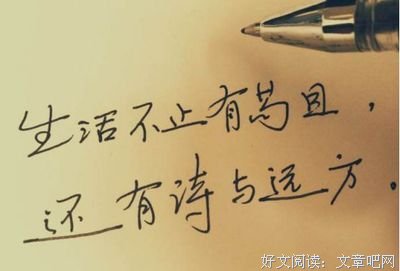 生活不止有苟且，
还有诗与远方。
好文阅读：文章吧网